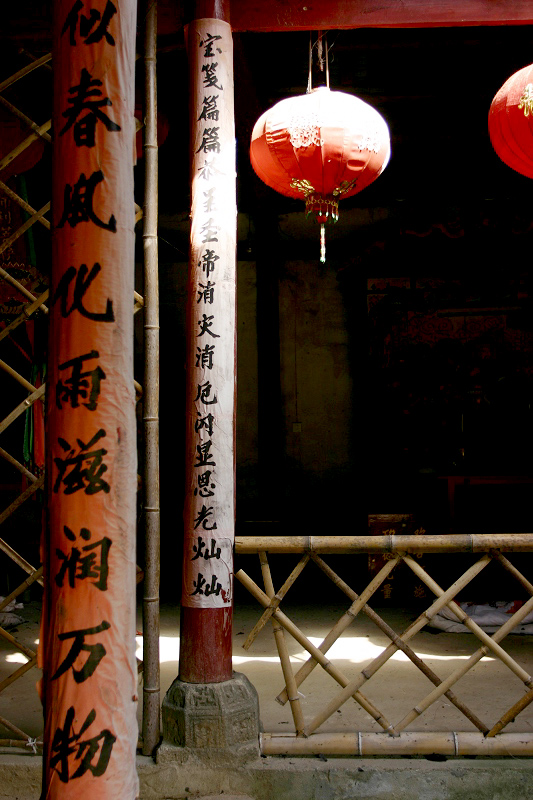 宝笺篇篇呈圣帝消灾消厄闪显恩光灿灿
似春風化雨滋润万物